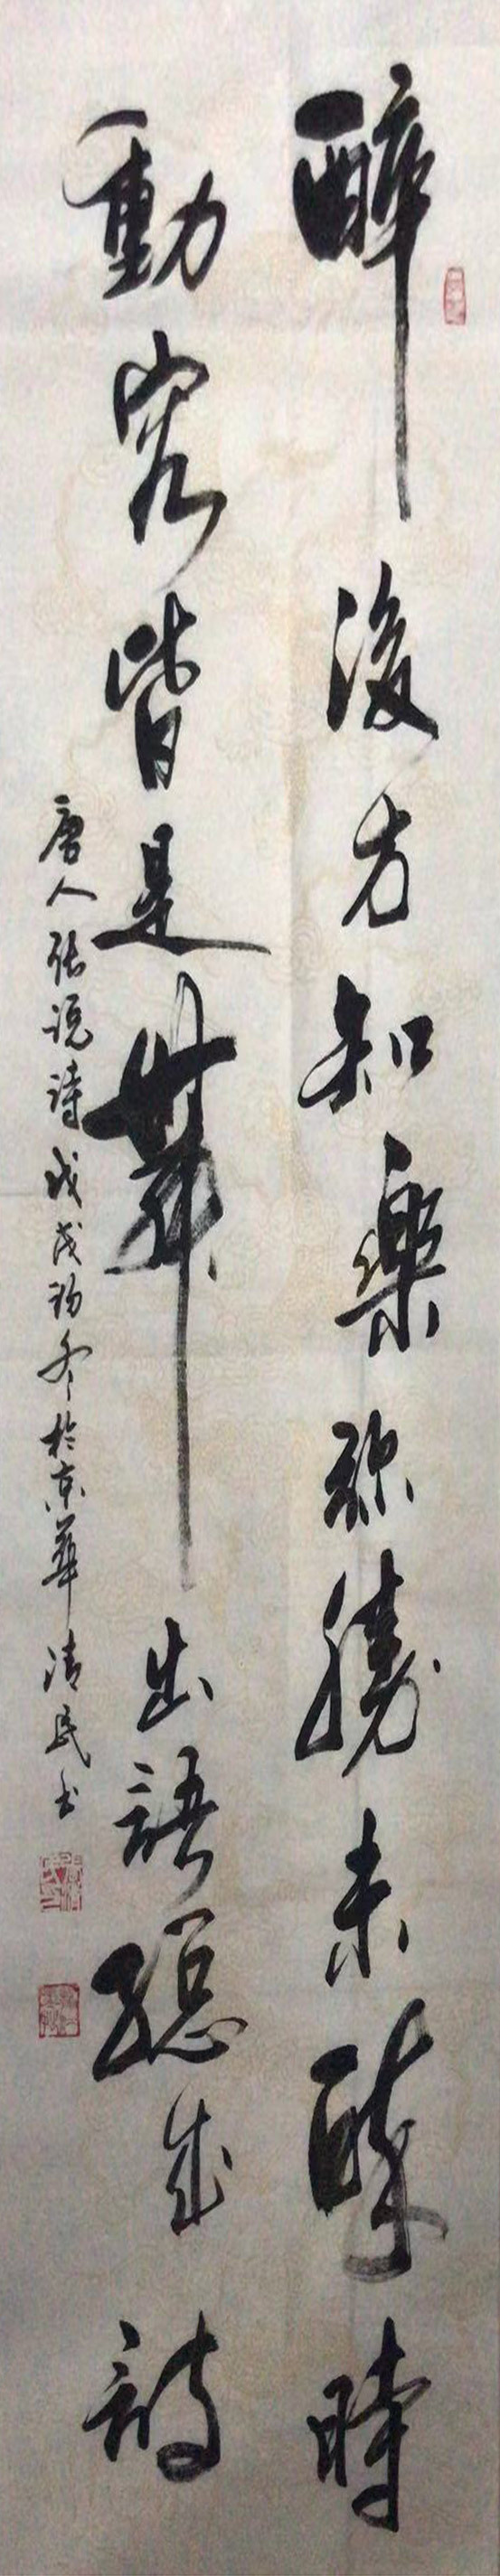 醉後方知樂弥勝未醉時
動容皆是舞出語總成詩
唐人張說詩戊戌初冬於京華清民书